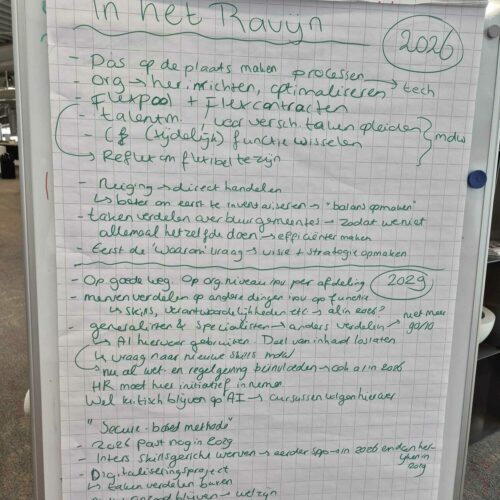 In het Ravijn
2026
- Pas op de plaats maken processen → tech
- org → her inrichten, optimaliseren
- Flexpool + Flexcontracten
- talentm. / voor versch. taken opleiden } mdw
- (tijdelijk) functie wisselen
↳ Reflex om flexibel te zijn
- Neiging → direct handelen
↳ beter om eerst te inventariseren → "balans opmaken"
- taken verdelen over buurgemeentes → zodat we niet
allemaal hetzelfde doen → efficiënter maken
- Eerst de 'waarom' vraag → visie + strategie opmaken
- Op goede weg. Op org. niveau ipv per afdeling
2029
- mensen verdelen op andere dingen ipv op functie
↳ skills, verantwoordelijkheden etc → al in 2026?
- generalisten & specialisten → anders verdelen → niet meer
↳ AI hiervoor gebruiken. Deel van inhoud loslaten
↳ vraag naar nieuwe skills mdw
→ nu al wet- en regelgeving beïnvloeden → ook al in 2026
HR moet hier initiatief in nemen
Wel kritisch blijven op AI → cursussen volgen hierover
"Secure-based methode"
- 2026 past nog in 2029
- Intern skillsgericht werven → eerder opp → in 2026 en dan
2029
- Digitaliseringsproject
↳ taken verdelen buren
blijven → welzijn